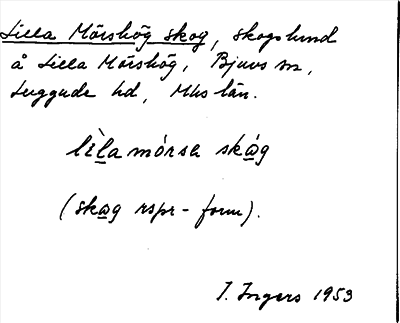 Lilla Mörshög skog, skogslund
å Lilla Mörshög, Bjuvs sn,
Luggude hd, Mhs län.
lìla mórsa skág
(skag rspr-form).
I. Ingers 1953